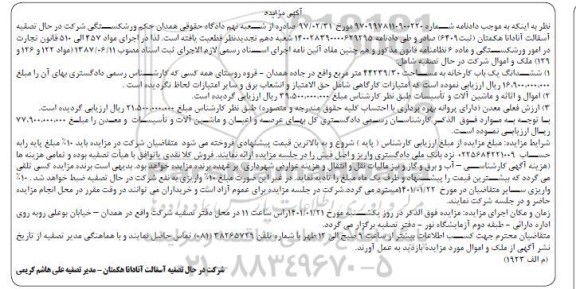 آگهی مزایده
نظر به اینکه به موجب دادنامه شماره ۹۷۰۹۹۷۸۱۱۰۹۰۰۲۲۰ مورخ ۹۷/۰۲/۳۱ صادره از شعبه نهم دادگاه حقوقی همدان حکم ورشکستگی شرکت در حال تصفیه
آسفالت آنادانا هگمتان (ثبت ۶۴۰۹) صادر و طی دادنامه شعبه دهم تجدیدنظر قطعیت یافته است. لذا در اجرای مواد ۴۵۷ الی ۵۱۰ قانون تجارت
در امور ورشکستگی و ماده ۶ نظامنامه قانون مذکور و هم چنین مفاد آئین نامه اجرای اسناد رسمی لازم الاجرای ثبت اسناد مصوب ۱۳۸۷/۰۶/۱۱ (مواد ۱۲۲ و ۱۲۶ و
۱۲۹) ملک و اموال شرکت در حال تصفیه شامل:
۱) ششدانگ یک باب کارخانه به مساحت ۴۴۲۳۹/۳۰ متر مربع واقع در جاده همدان - قروه روستای همه کسی که کارشناس رسمی دادگستری بهای آن را مبلغ
۱۶.۹۰۰.۰۰۰.۰۰۰ ریال ارزیابی نموده است که امتیازات کارگاهی شامل حق الامتیاز و انشعاب برق و سایر امتیازات لحاظ نگردیده است.
۲) اموال و اثاثه و ماشین آلات و تأسیسات طبق نظر کارشناس مبلغ ۳۹.۵۰۰.۰۰۰.۰۰۰ ریال ارزیابی گردیده است.
۳) ارزش فعلی معدن (دارای پروانه بهره برداری با احتساب کلیه حقوق مندرجه و متصوره) طبق نظر کارشناس مبلغ ۲۱.۵۰۰.۰۰۰.۰۰۰ ریال ارزیابی گردیده است.
با توجه به موارد فوق الذکر کارشناسان رسمی دادگستری کل بهای عرصه و اعیان و ماشین آلات و تأسیسات و معدن را مبلغ ۷۷.۹۰۰.۰۰۰.۰۰۰
ریال ارزیابی نموده است.
شرایط مزایده: مبلغ مزایده از مبلغ ارزیابی کارشناس (پایه) شروع و به بالاترین قیمت پیشنهادی فروخته می شود. متقاضیان شرکت در مزایده باید ۱۰٪ مبلغ پایه رابه
حساب نزد بانک ملی دادگستری واریز و اصل فیش را در جلسه مزایده ارائه نمایند. فروش کلا نقدی یا توافق با هیأت تصفیه بوده و تمامی هزینه ها
(هزینه آگهی، کارشناسی - آب و برق و گاز و نیز مالیات نقل و انتقال و هزینه عوارض شهرداری) بر عهده برنده مزایده خواهد بود. بدیهی است برنده مزایده کسی تلقی
می گردد که بیشترین قیمت را پیشنهاد و ظرف یک ماه مبلغ را تأدیه نماید. در غیر این صورت مبلغ ۱۰٪ واریزی به نفع شرکت در حال تصفیه ضبط خواهد شد. ۱۰٪
واریزی سایر متقاضیان در مورخ ۱۴۰۱/۰۱/۲۲ مسترد می گردد. شرکت در جلسه مزایده برای عموم آزاد است و خریداران می توانند در وقت مقرر در محل انجام مزایده
حاضر و در جلسه شرکت نمایند.
زمان و مکان اجرای مزایده: مزایده فوق الذکر در روز یکشنبه مورخ ۱۴۰۱/۰۱/۲۱ راس ساعت ۱۱ در محل دفتر تصفیه شرکت واقع در همدان - خیابان بوعلی روبه روی
اداره دارائی - طبقه دوم آزمایشگاه نور - دفتر تصفیه برگزار می گردد.
متقاضیان محترم جهت کسب اطلاعات بیشتر از ساعت ۹ صبح الی ۱۲ ظهر با شماره تلفن ۳۸۲۶۵۷۲۹ (۰۸۱) تماس حاصل نمایند و با هماهنگی مدیر تصفیه از تاریخ
نشر آگهی از ملک و اموال مورد مزایده بازدید به عمل آورند.
(م الف ۱۹۲۳)
شرکت در حال تصفیه آسفالت آنادانا هگمتان - مدیر تصفیه علی هاشم کریمی
۰۲۱-۸۸۳۴۹۶۷۰-۵